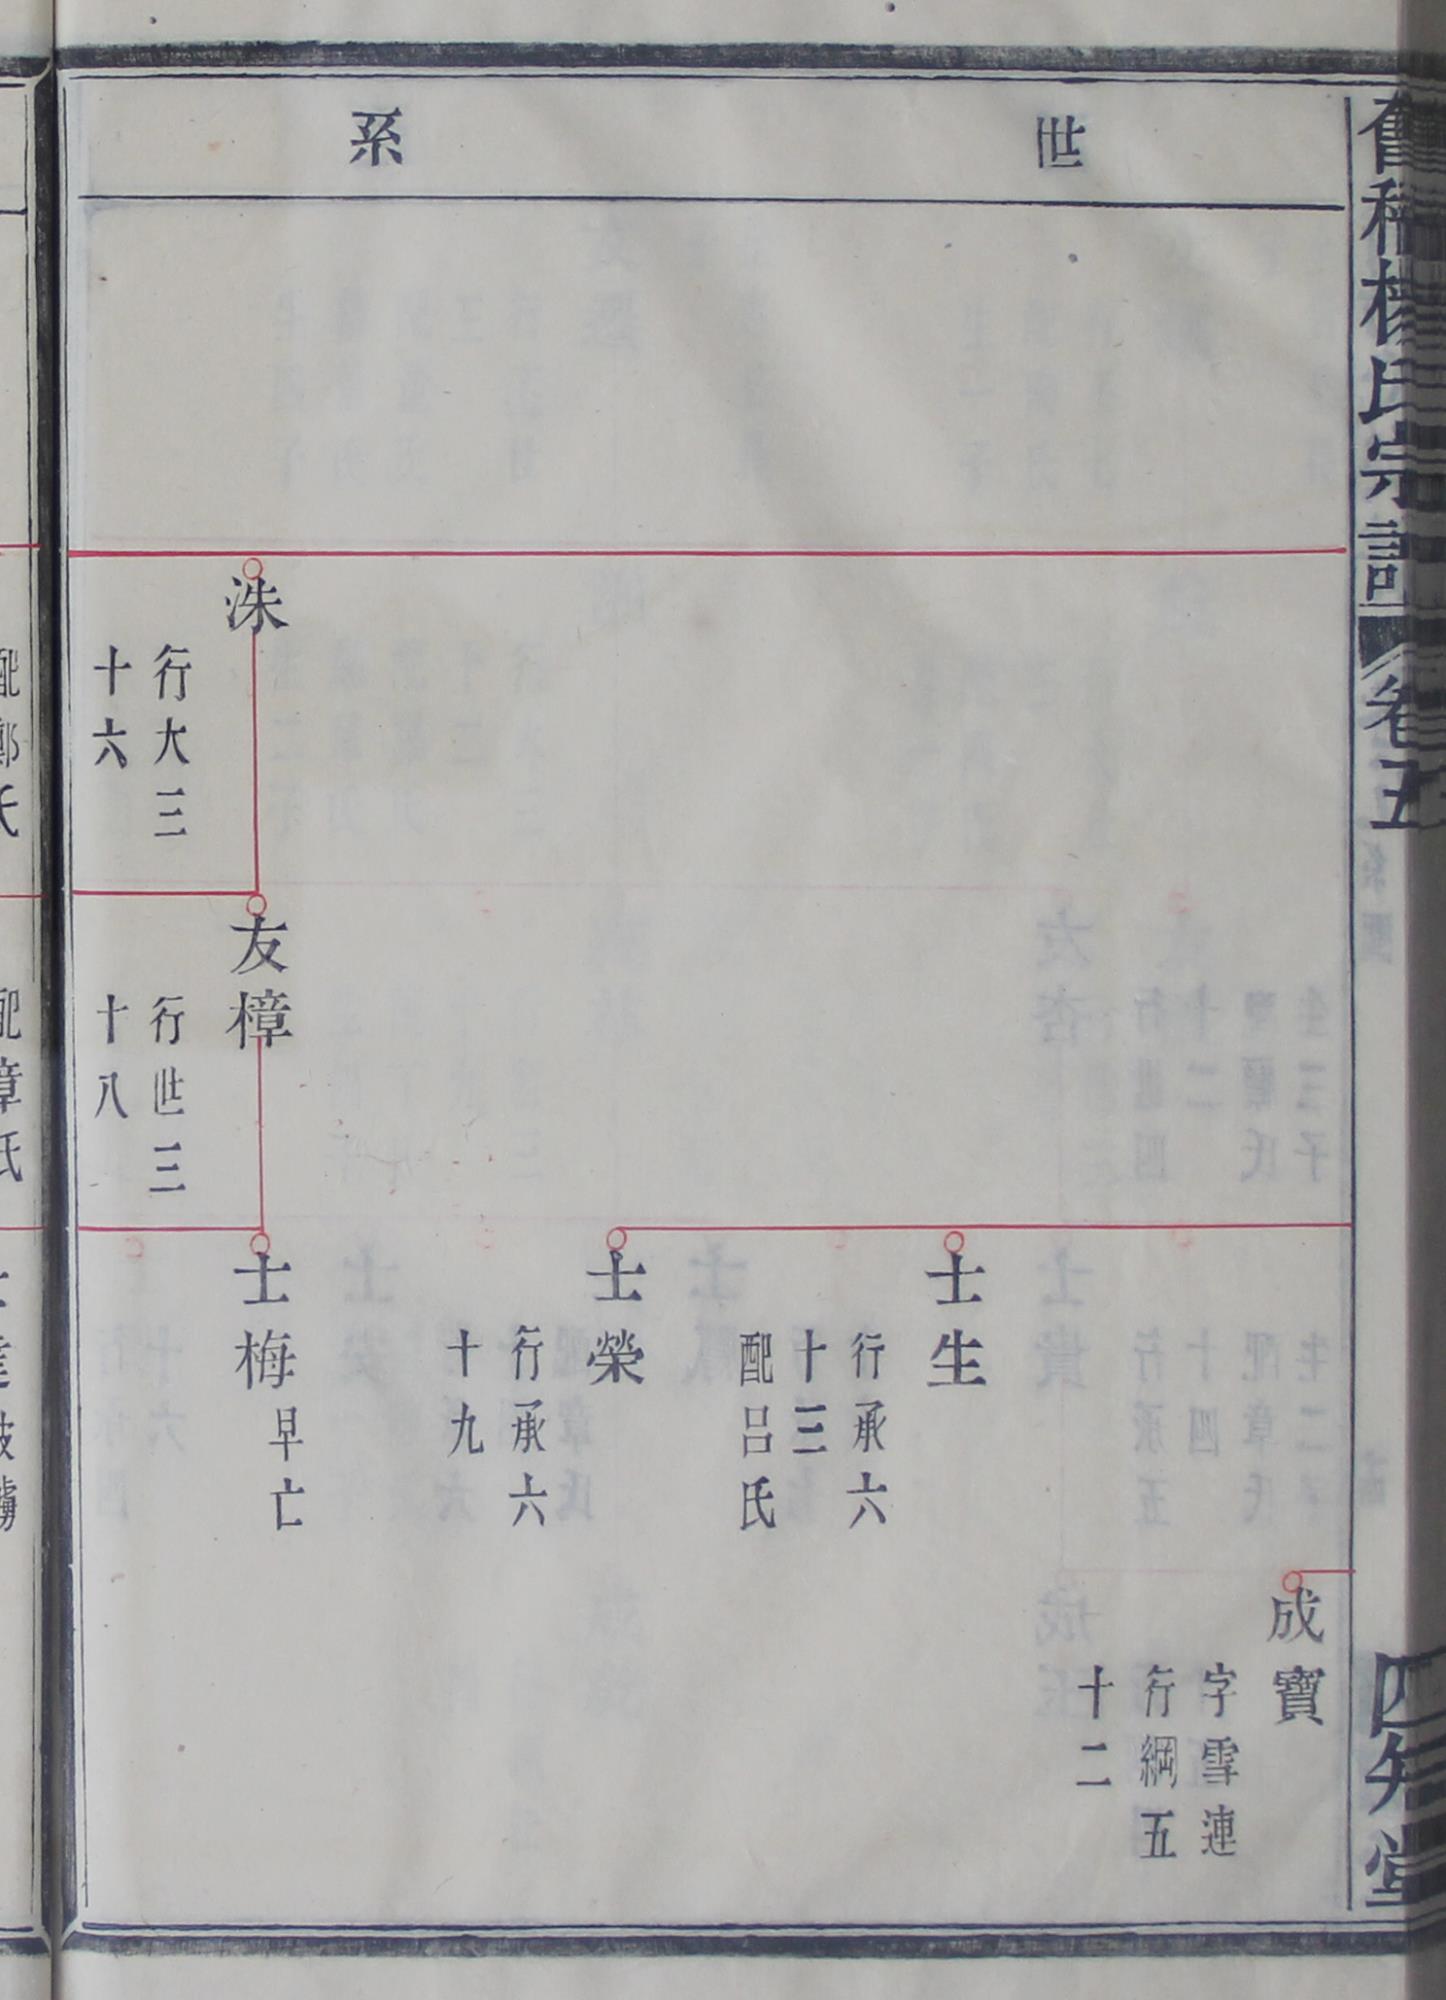 世系
成寶
字雪連
行綱五
十二
士生
行承六
十三
配呂氏
士榮
行承六
十九
洙
行大三
十六
友樟
行世三
十八
士梅
早亡
楊氏宗譜
卷五
四知堂
章氏